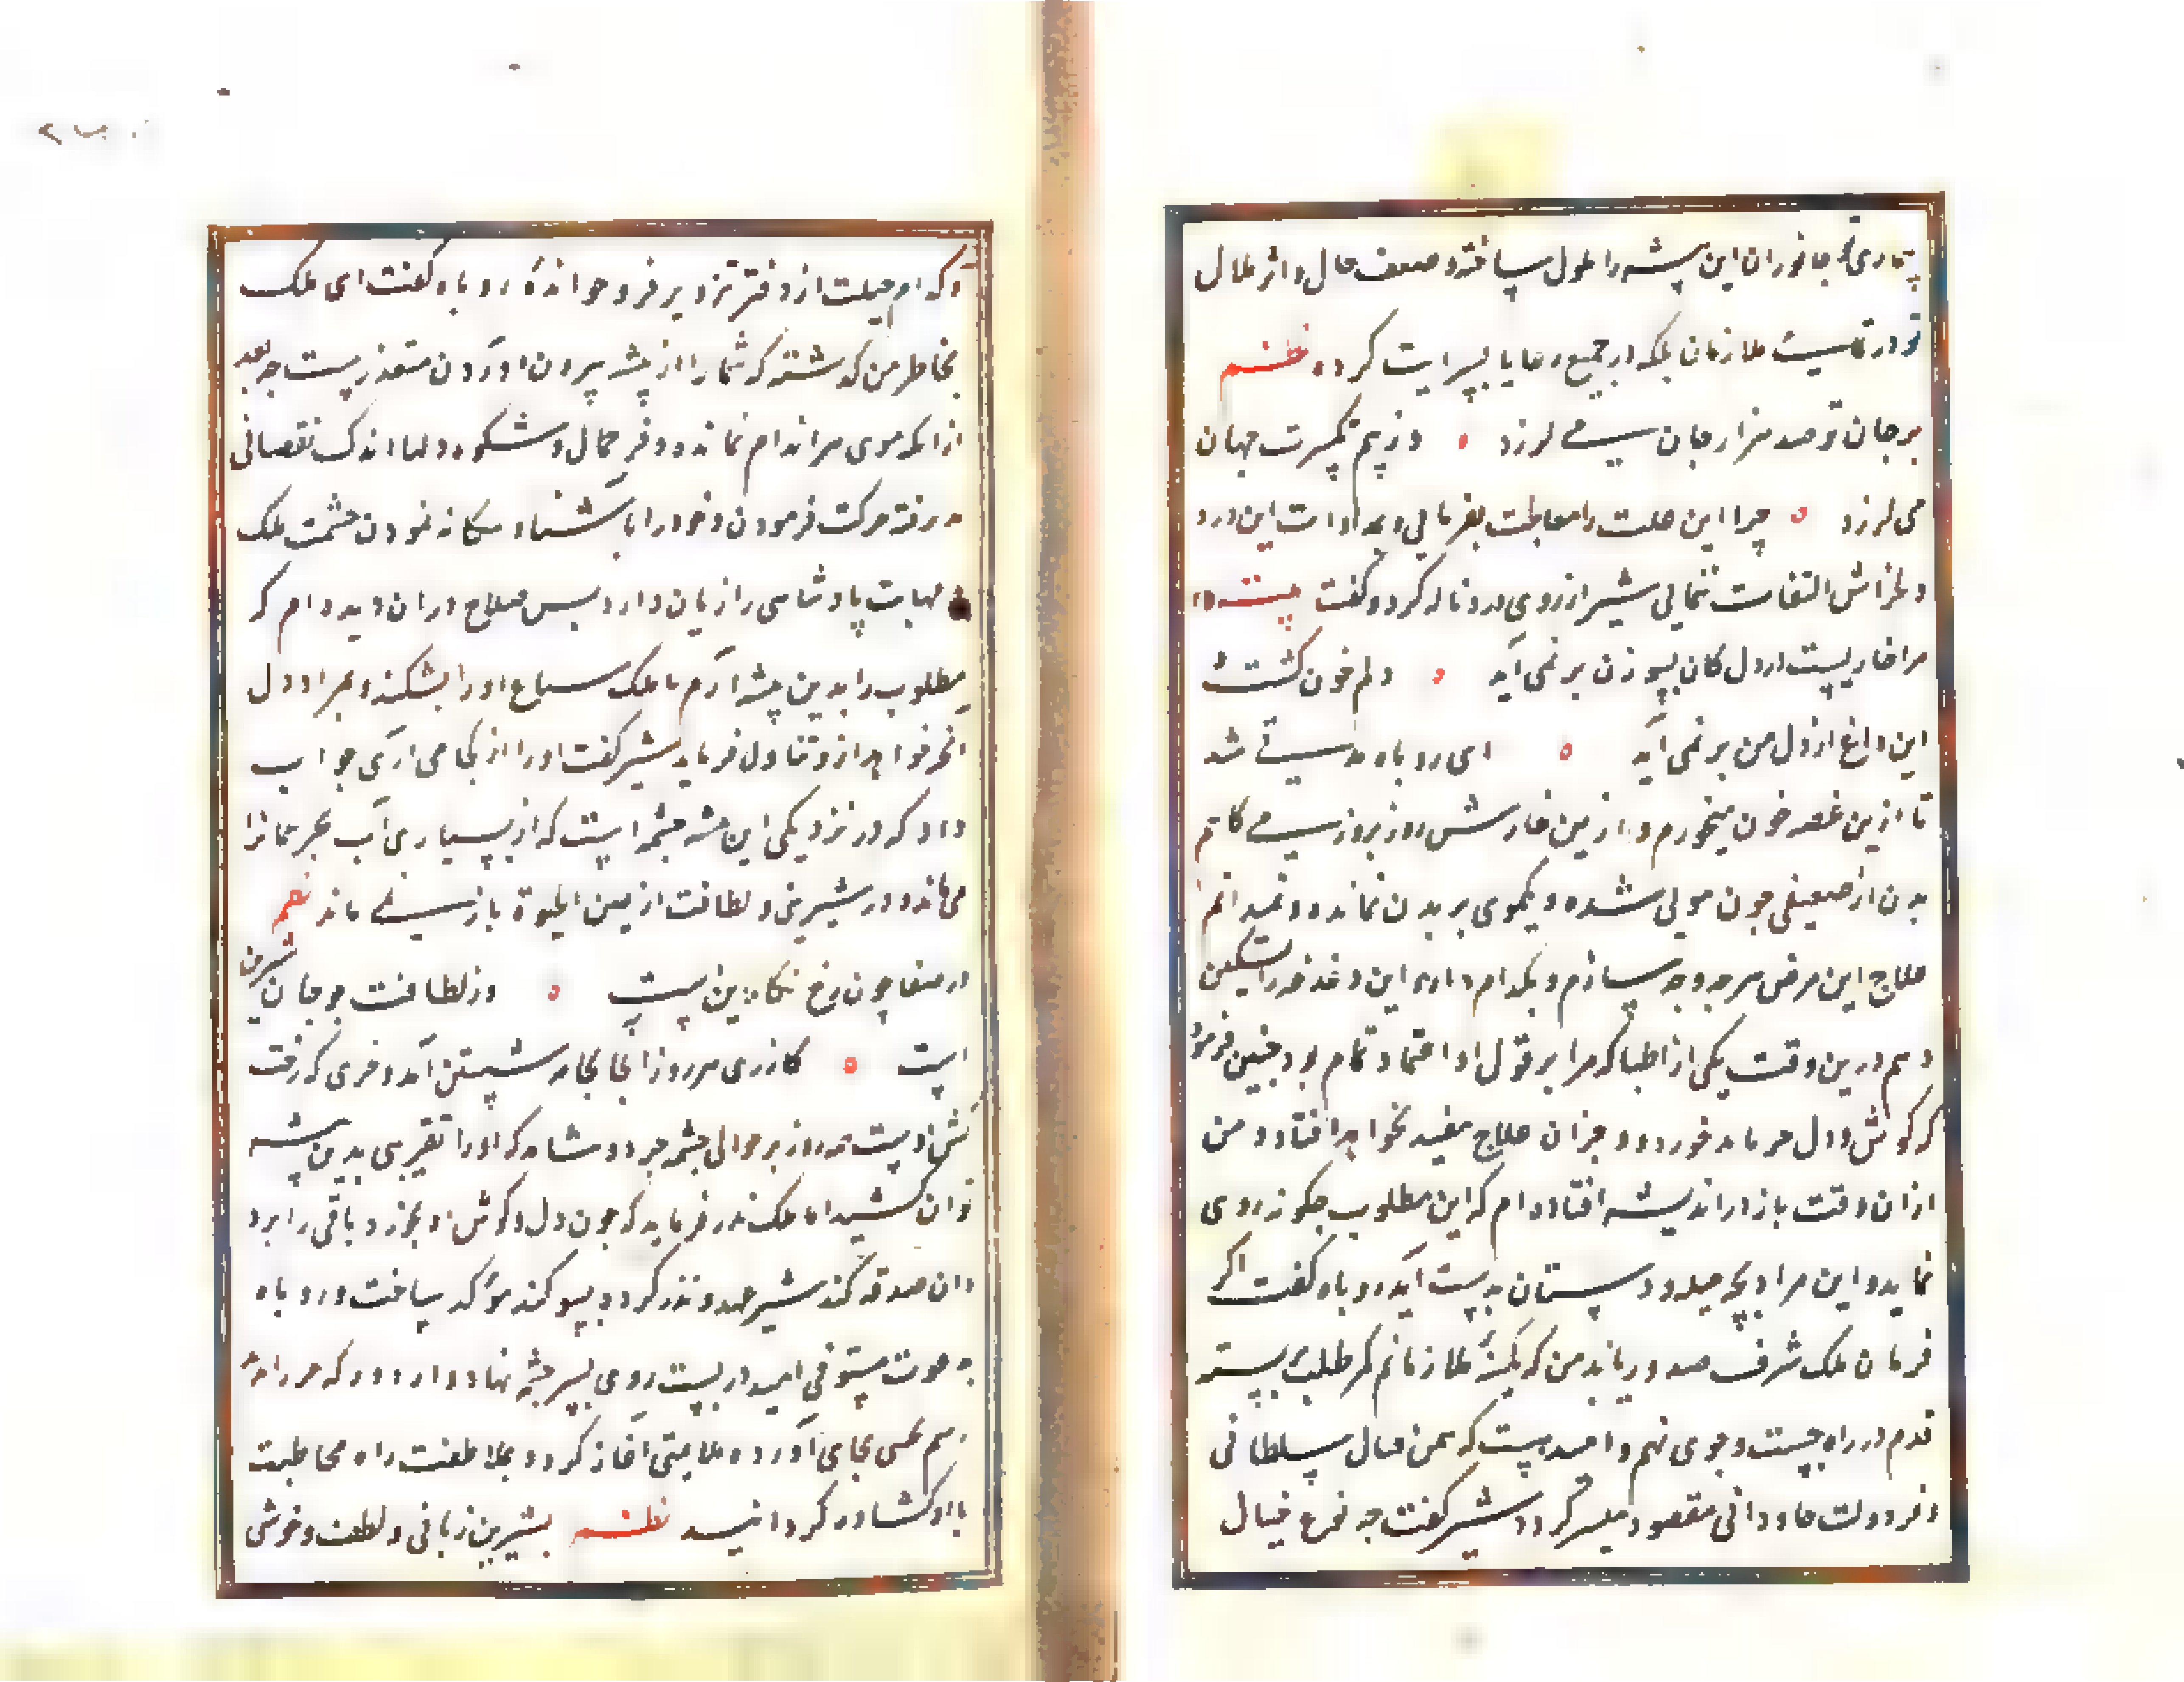 بیماری تو جانوران این بیشه را ملول ساخته و ضعف حال و اثر ملال
تو در تمامیت ملازمان بلکه در جمیع رعایا سرایت کرده نظم
بر جان تو صد هزار جان می لرزد ه وز بیم تکسرت جهان
می لرزد ه چرا این علت را معالجت نفرمایی و بمداوات این درد
دلخراش التفات ننمایی شیر از روی درد ناله کرد و گفت بیت
مرا خاریست در دل کان بسوزن بر نمی آید ه دلم خون گشت
این داغ از دل من بر نمی آید ه ای روباه مدتی شد
تا ازین غصه خون میخورم و ازین خارش روز بروز می کاهم
بدن از ضعیفی چون مویی شده و یکموی بر بدن نمانده و نمیدانم
علاج این مرض بر چه وجه سازم و بکدام دارو این دغدغه را تسکین
دهم درین وقت یکی از اطبا که مرا بر قول او اعتماد تمام بود چنین فرمود
که گوش و دل خر باید خورد و جز آن علاج مفید نخواهد افتاد و من
از آن وقت باز در اندیشه افتاده ام که این مطلوب چگونه روی
نماید و این مراد بچه حیله و دستان بدست آید روباه گفت اگر
فرمان ملک شرف صدور یابد من که کمینه ملازمانم کمر طلب بسته
قدم در راه جست و جوی نهم و امید هست که بیمن اقبال سلطانی
و فر دولت جاودانی مقصود میسر گردد شیر گفت چه نوع خیال
و کدام حیلت از دفتر تزویر فرو خوانده روباه گفت ای ملک
بخاطر من گذشته که شما را از بیشه بیرون آوردن متعذرست چه بعد
از آنکه موی بر اندام نمانده و فر جمال و شکوه دلها اندک نقصانی
پذیرفته حرکت فرمودن و خود را باشنا و بیگانه نمودن حشمت ملک
و مهابت پادشاهی را زیان دارد پس صلاح در آن دیده ام که
مطلوب را بدین بیشه آرم تا ملک سباع او را بشکند و بمراد دل
آنچه خواهد ازو تناول فرماید شیر گفت او را از کجا می آری جواب
داد که در نزدیکی این بیشه چشمه ایست که از بسیاری آب بحر عمانرا
می ماند و در شیرینی و لطافت از عین الحیوة باز می ماند نظم
در صفا چون رخ نگارین ست ه وز لطافت چو جان شیرین
است ه گازری هر روز آنجا بجامه شستن آید و خری که رخت
کش اوست همه روز بر حوالی چشمه چرد و شاید که او را تقریبی بدین بیشه
توان کشید اما ملک نذر فرماید که چون دل و گوش او بخورد باقی را برد
دان صدقه کند شیر عهد و نذر کرد و بسوگند مؤکد ساخت و روباه
بدعوت مستوفی امیدوار بست روی بسر چشمه نهاد و از دور که خر را
رسم تحیتی بجای آورد و ملایمتی آغاز کرد و بملاطفت راه مخاطبت
با او گشاده گردانید نظم بشیرین زبانی و لطف و خوشی